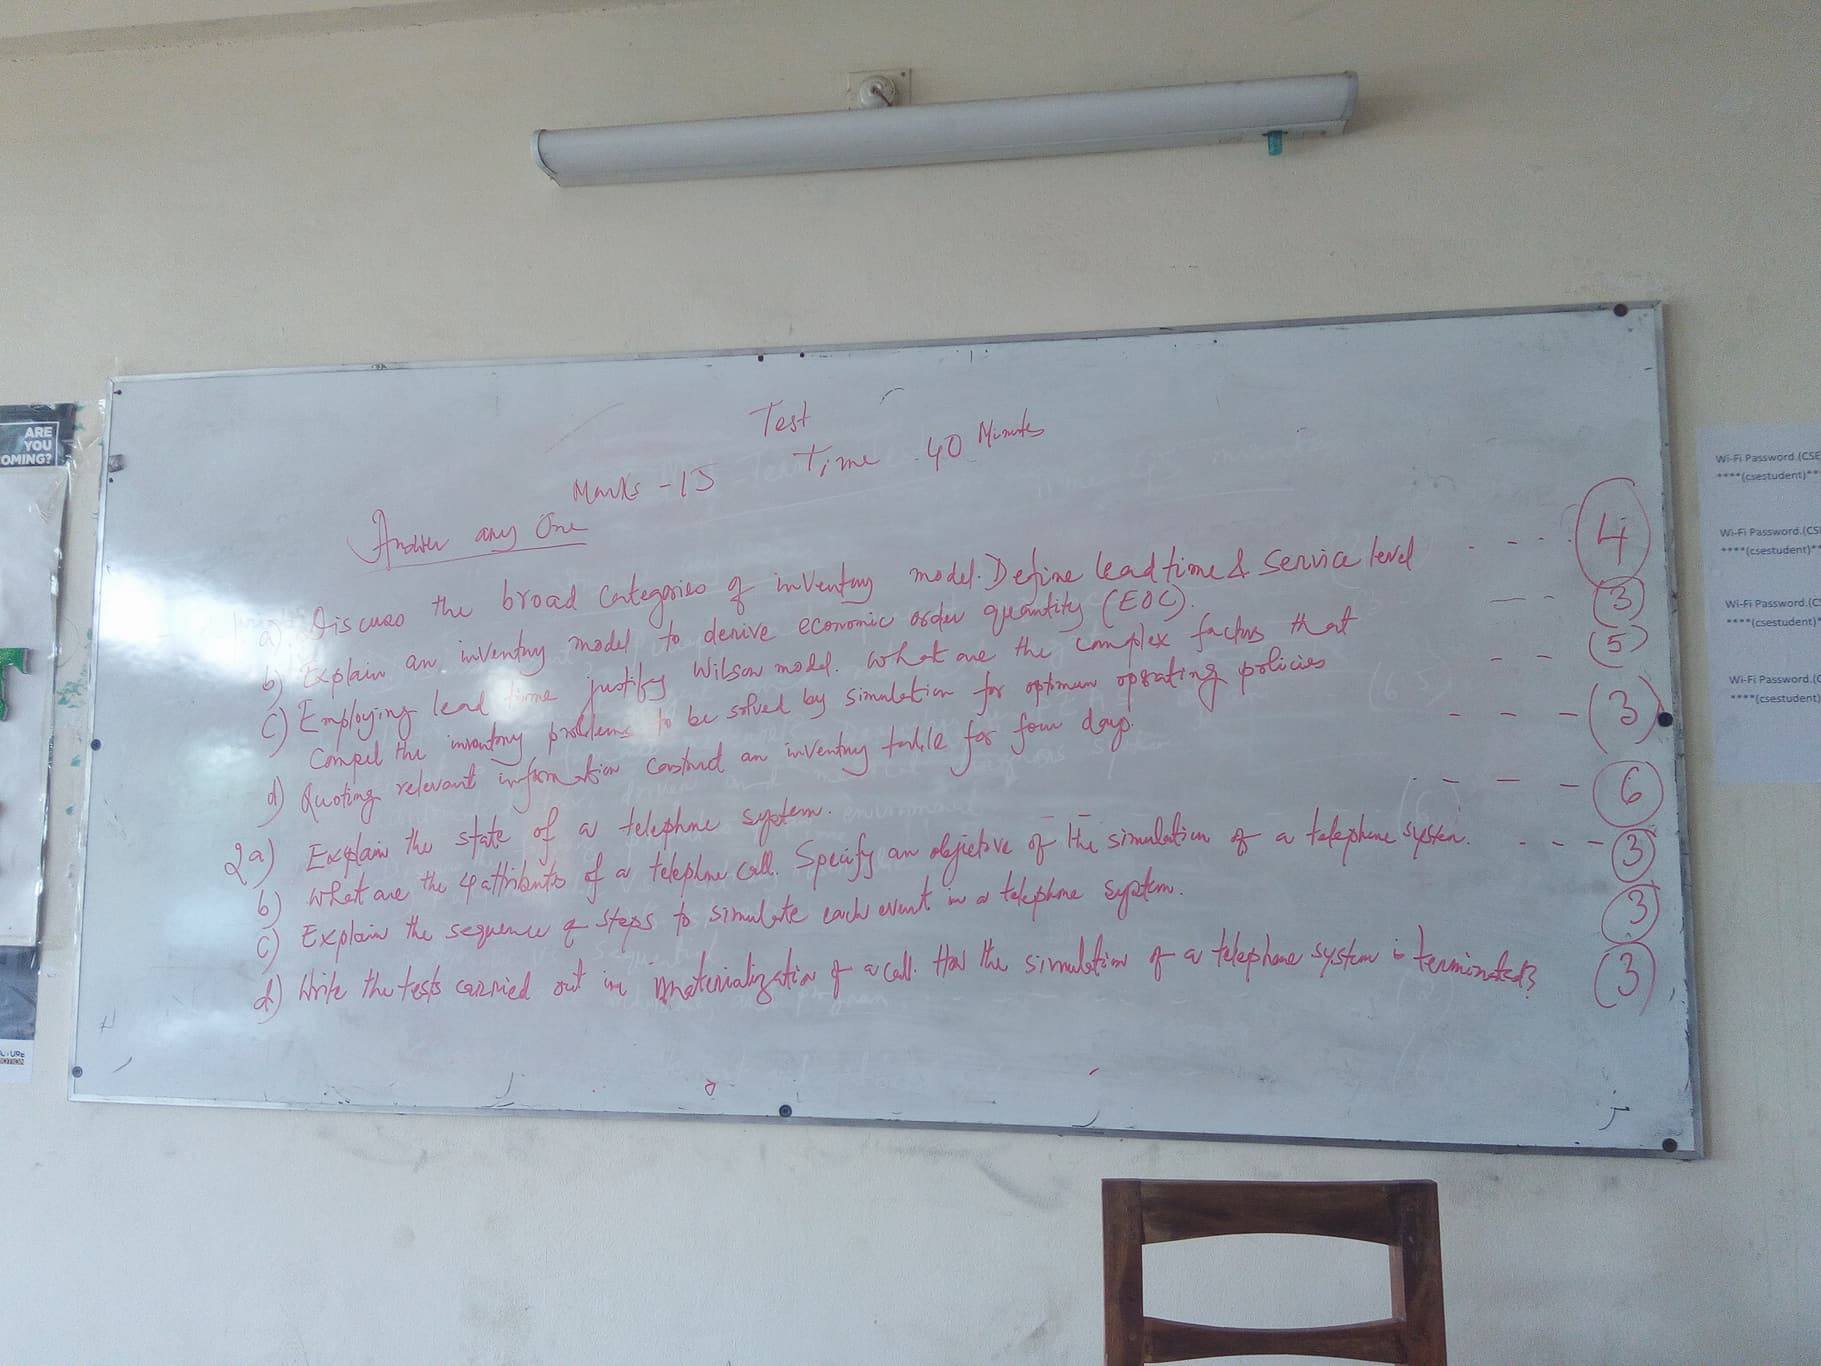 Test
Marks - 15 Time 40 Minutes
Answer any One
a) Discuss the broad categories of inventory model. Define lead time & Service level - - - (4)
b) Explain an inventory model to derive economic order quantity (EOC). - - - (3)
c) Employing lead time justify Wilson model. What are the complex factors that (5)
compel the inventory problems to be solved by simulation for optimum operating policies - -
d) Quoting relevant information construct an inventory table for four days. - - - (3)
2a) Explain the state of a telephone system. - - - - (6)
b) What are the 4 attributes of a telephone call. Specify an objective of the simulation of a telephone system. - - - (3)
c) Explain the sequence of steps to simulate each event in a telephone system. (3)
d) Write the tests carried out in materialization of a call. How the simulation of a telephone system is terminated? (3)
ARE
YOU
OMING?
Wi-Fi Password.(CSE
****(csestudent)**
Wi-Fi Password.(CS
****(csestudent)**
Wi-Fi Password.(CS
****(csestudent)**
Wi-Fi Password.(C
****(csestudent)